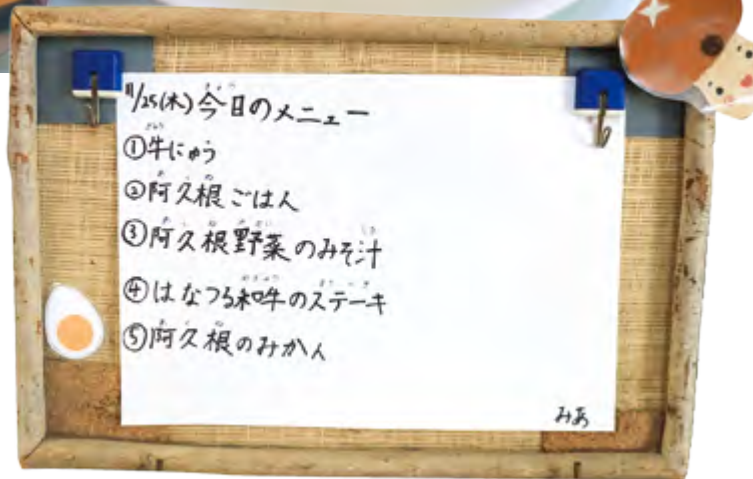 11/25(木)今日のメニュー
①牛にゅう
②阿久根ごはん
③阿久根野菜のみそ汁
④はなつる和牛のステーキ
⑤阿久根のみかん
みあ